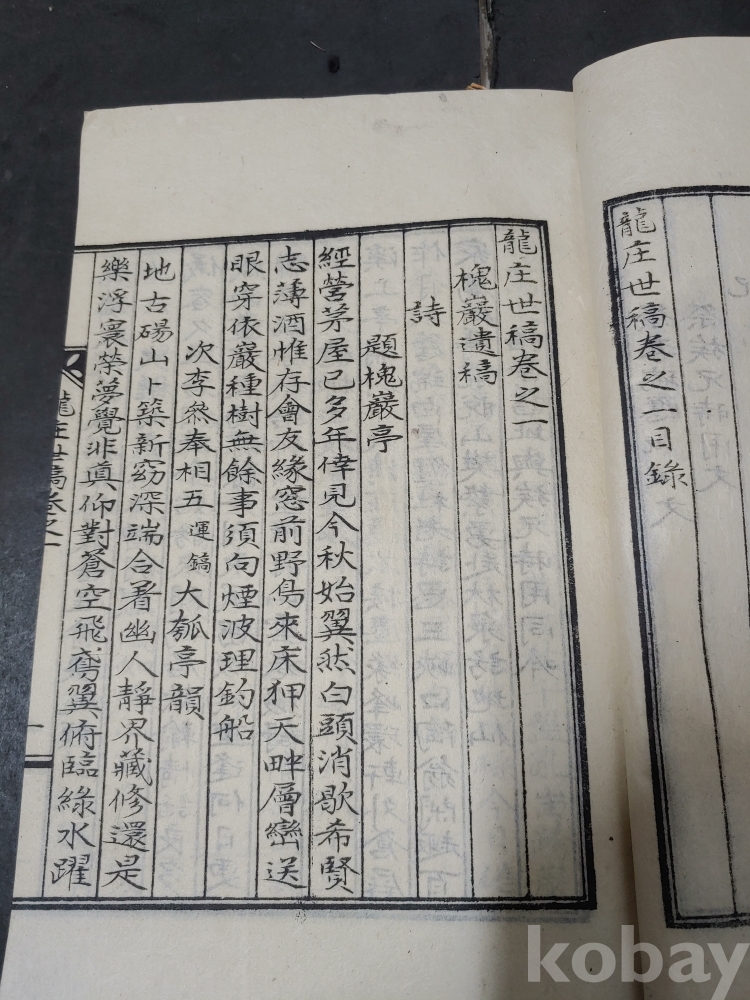 龍庄世稿卷之一目錄
龍庄世稿卷之一
槐巖遺稿
詩
題槐巖亭
經營茅屋已多年倖見今秋始翼然白頭消歇希賢
志薄酒惟存會友緣窓前野鳥來床狎天畔層巒送
眼穿依巖種樹無餘事須向煙波理釣船
次李參奉相五運鎬大瓠亭韻
地古碭山卜築新窈深端合着幽人靜界藏修還是
樂浮寰榮夢覺非眞仰對蒼空飛鳶翼俯臨綠水躍
龍庄世稿卷之一
一
kobay